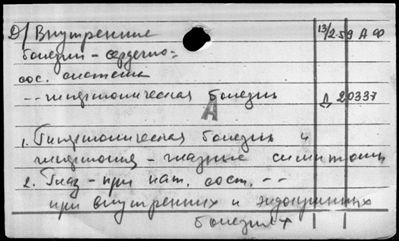 Д/ Внутренние 13/2-59 А 90
болезни – сердечно=
сос. система
-- гипертоническая болезнь Д 20337
А
1. Гипертоническая болезнь и
гипертония – глазные симптомы
2. Глаз – при пат. сост. --
при внутренних и эндокринных
болезнях